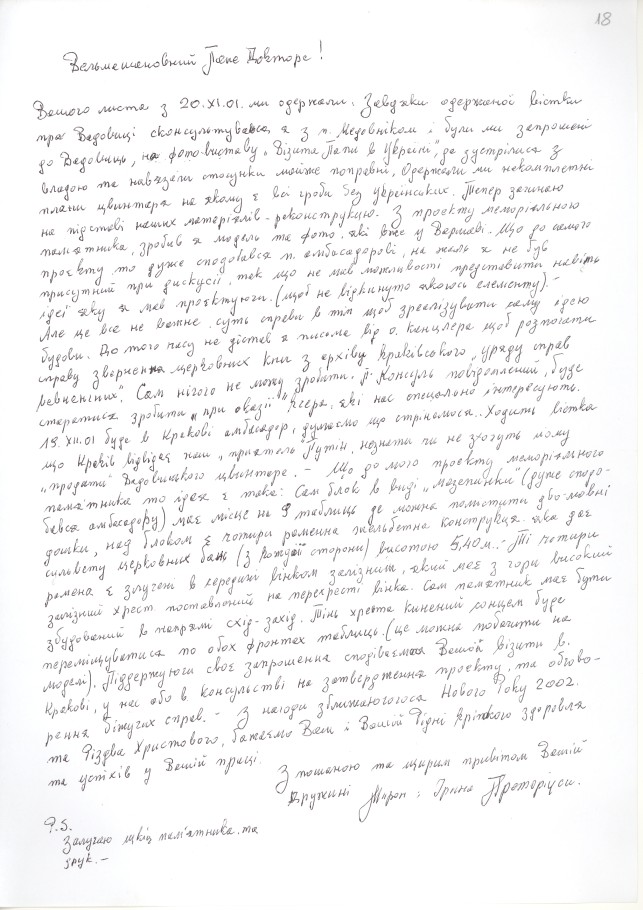 18
Вельмишановний Пане Докторе!
Вашого листа з 20.XI.01. ми одержали. Завдяки одержаної вістки
про Вадовиці сконсультувався я з п. Медовніком і були ми запрошені
до Вадовиць, на фото-виставу „Візита Папи в Україні", де зустрілися з
владою та нав'язали стосунки майже попровні. Одержали ми некомплетні
плани цвинтаря на якому є всі гроби без українських. Тепер зачинаю
на підставі наших матеріялів - реконструкцію. З проєкту меморіяльного
пам'ятника, зробив я модель та фото, які вже у Варшаві. Що до самого
проєкту то дуже сподобався п. амбасадорові, на жаль я не був
присутний при дискусії, так що не мав можливости представити навіть
ідеї яку я мав проєктуючи. (щоб не відкинуто якогось елементу). -
Але це все не важне, суть справи в тім щоб зреалізувати саму ідею
будови. До того часу не дістав я письма від о. канцлера щоб розпочати
справу звернення церковних книг з архіву Краківського „уряду справ
вевненшних". Сам нічого не можу зробити. П. Консуль повідоплений, буде
старатися зробити „при оказії" ксера, які нас спеціально інтересують.
19.XII.01 буде в Кракові амбасадор, думаємо що стрінемося. Ходить вістка
що Краків відвідає наш „приятель" Путін, незнати чи не схочуть йому
„продати" Вадовицького цвинтаря. - Що до мого проєкту меморіяльного
пам'ятника то ідея є така: Сам блок в виді „мазепинки" (дуже сподо-
бався амбасадору) має місце на 8 таблиць де можна помістити дво-мовні
дошки, над блоком є чотири раменна жельбетна конструкція яка дає
сильвету церковних бань (з кожної сторони) висотою 5,40 м. - Ті чотири
рамена є злучені в середині вінком залізним, який має з гори високий
залізний хрест поставлений на перехресті вінка. Сам памятник має бути
збудований в напрямі схід-захід. Тінь хреста кинений сонцем буде
переміщуватися по обох фронтах таблиць. (це можна побачити на
моделі). Піддержуючи своє запрошення сподіваємося Вашої візити в
Кракові, у нас або в консульстві на затвердження проєкту, та обгово-
рення біжучих справ. - З нагоди зближаючогося Нового Року 2002.
та Різдва Христового, бажаємо Вам і Вашій Рідні кріпкого здоровля
та успіхів у Вашій праці.
З пошаною та щирим привітом Вашій
Дружині Мирон і Ірина
P.S.
Залучаю шкіц пам'ятника та